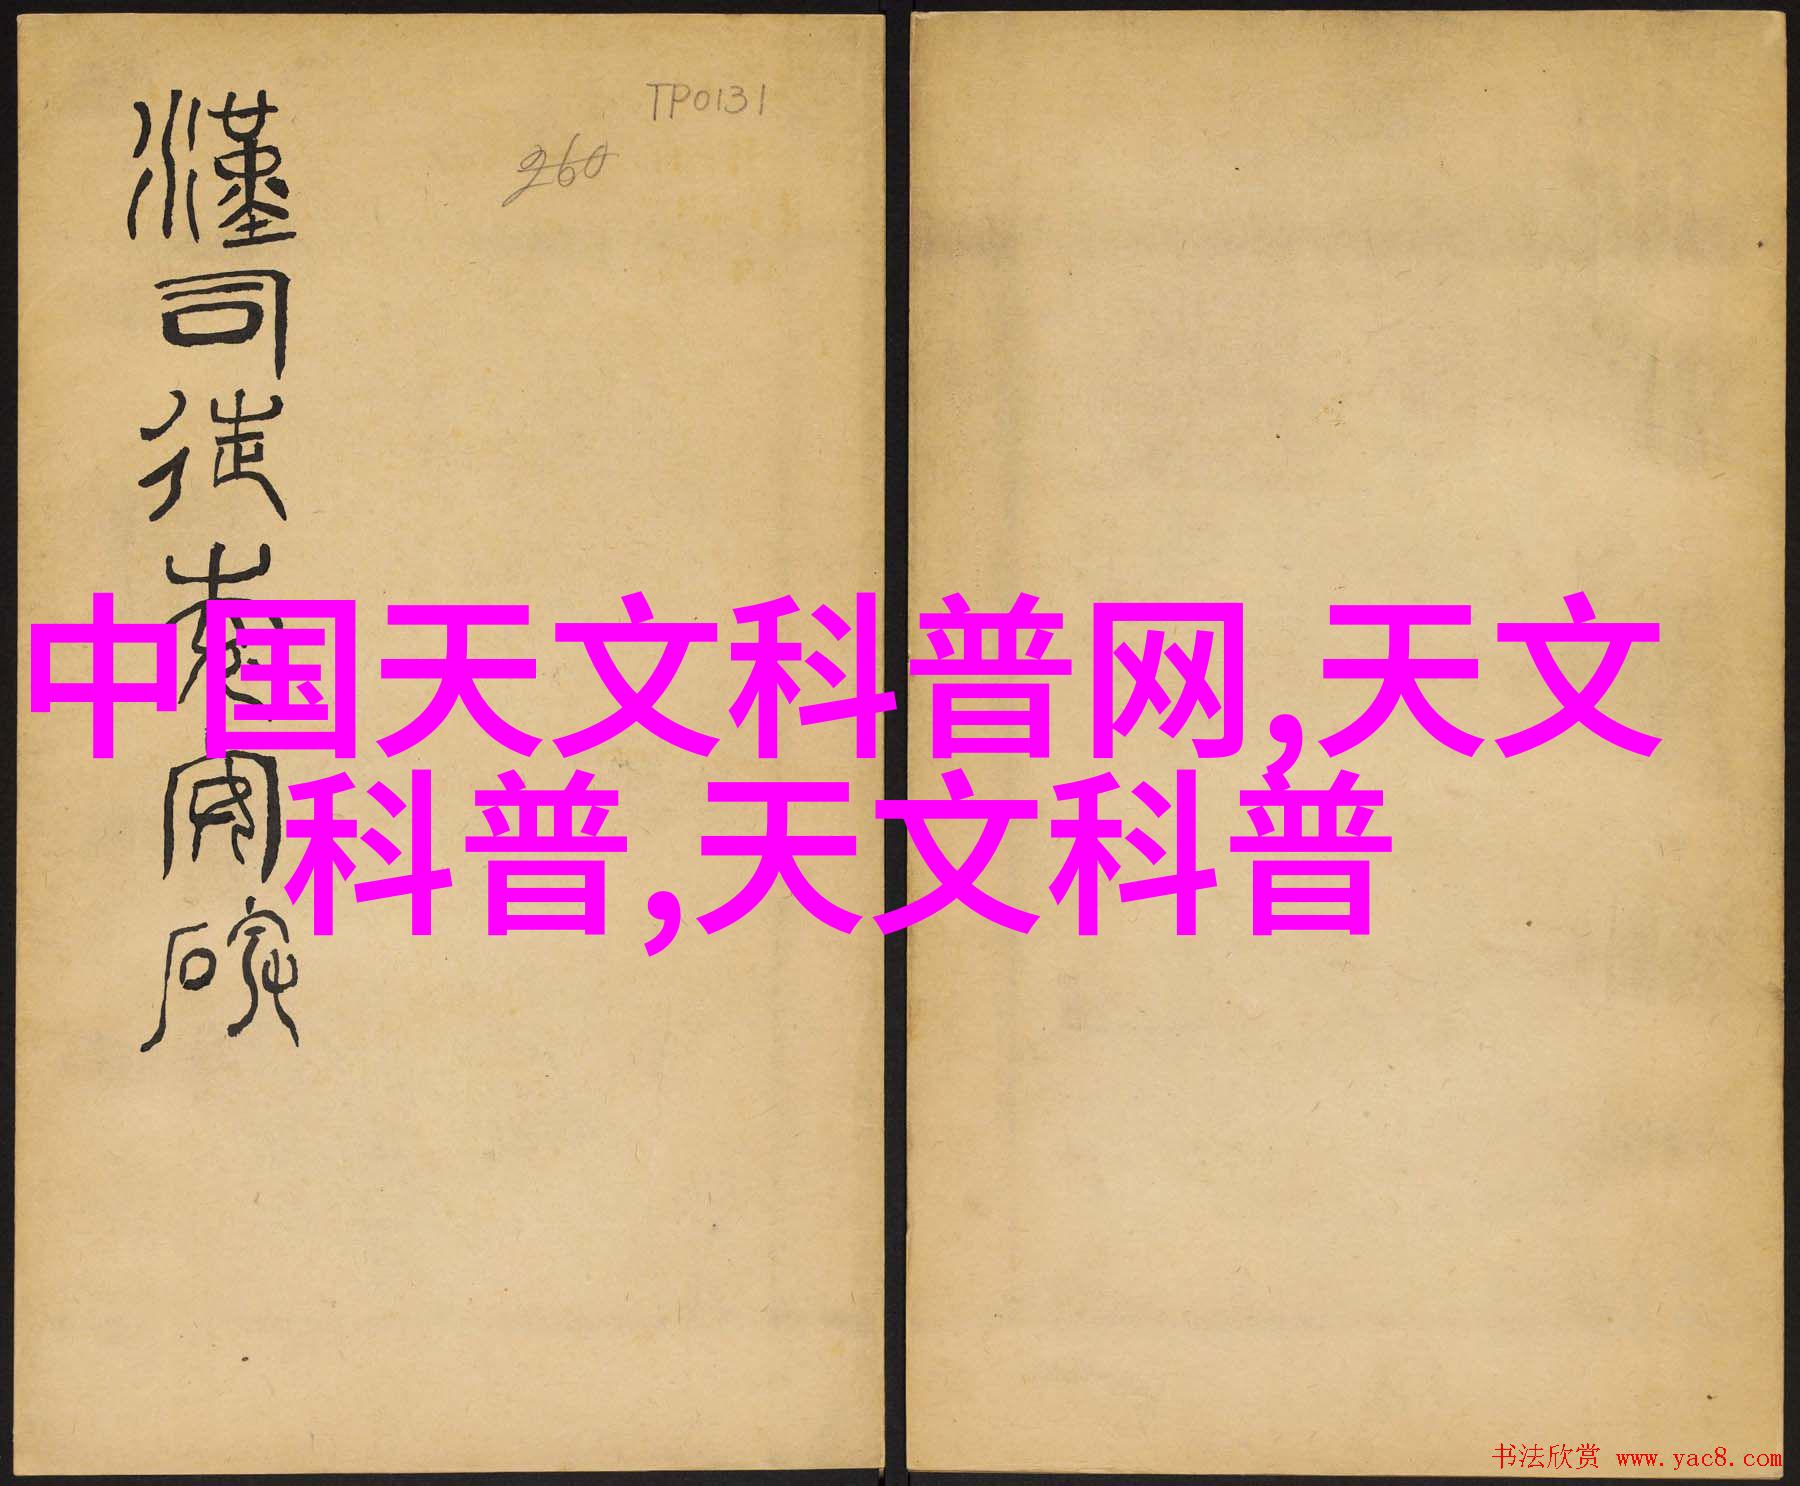 TP0131
260
漢司徒袁安碑
中国天文科普网,天文
科普,天文科普
书法欣赏 www.yac8.com